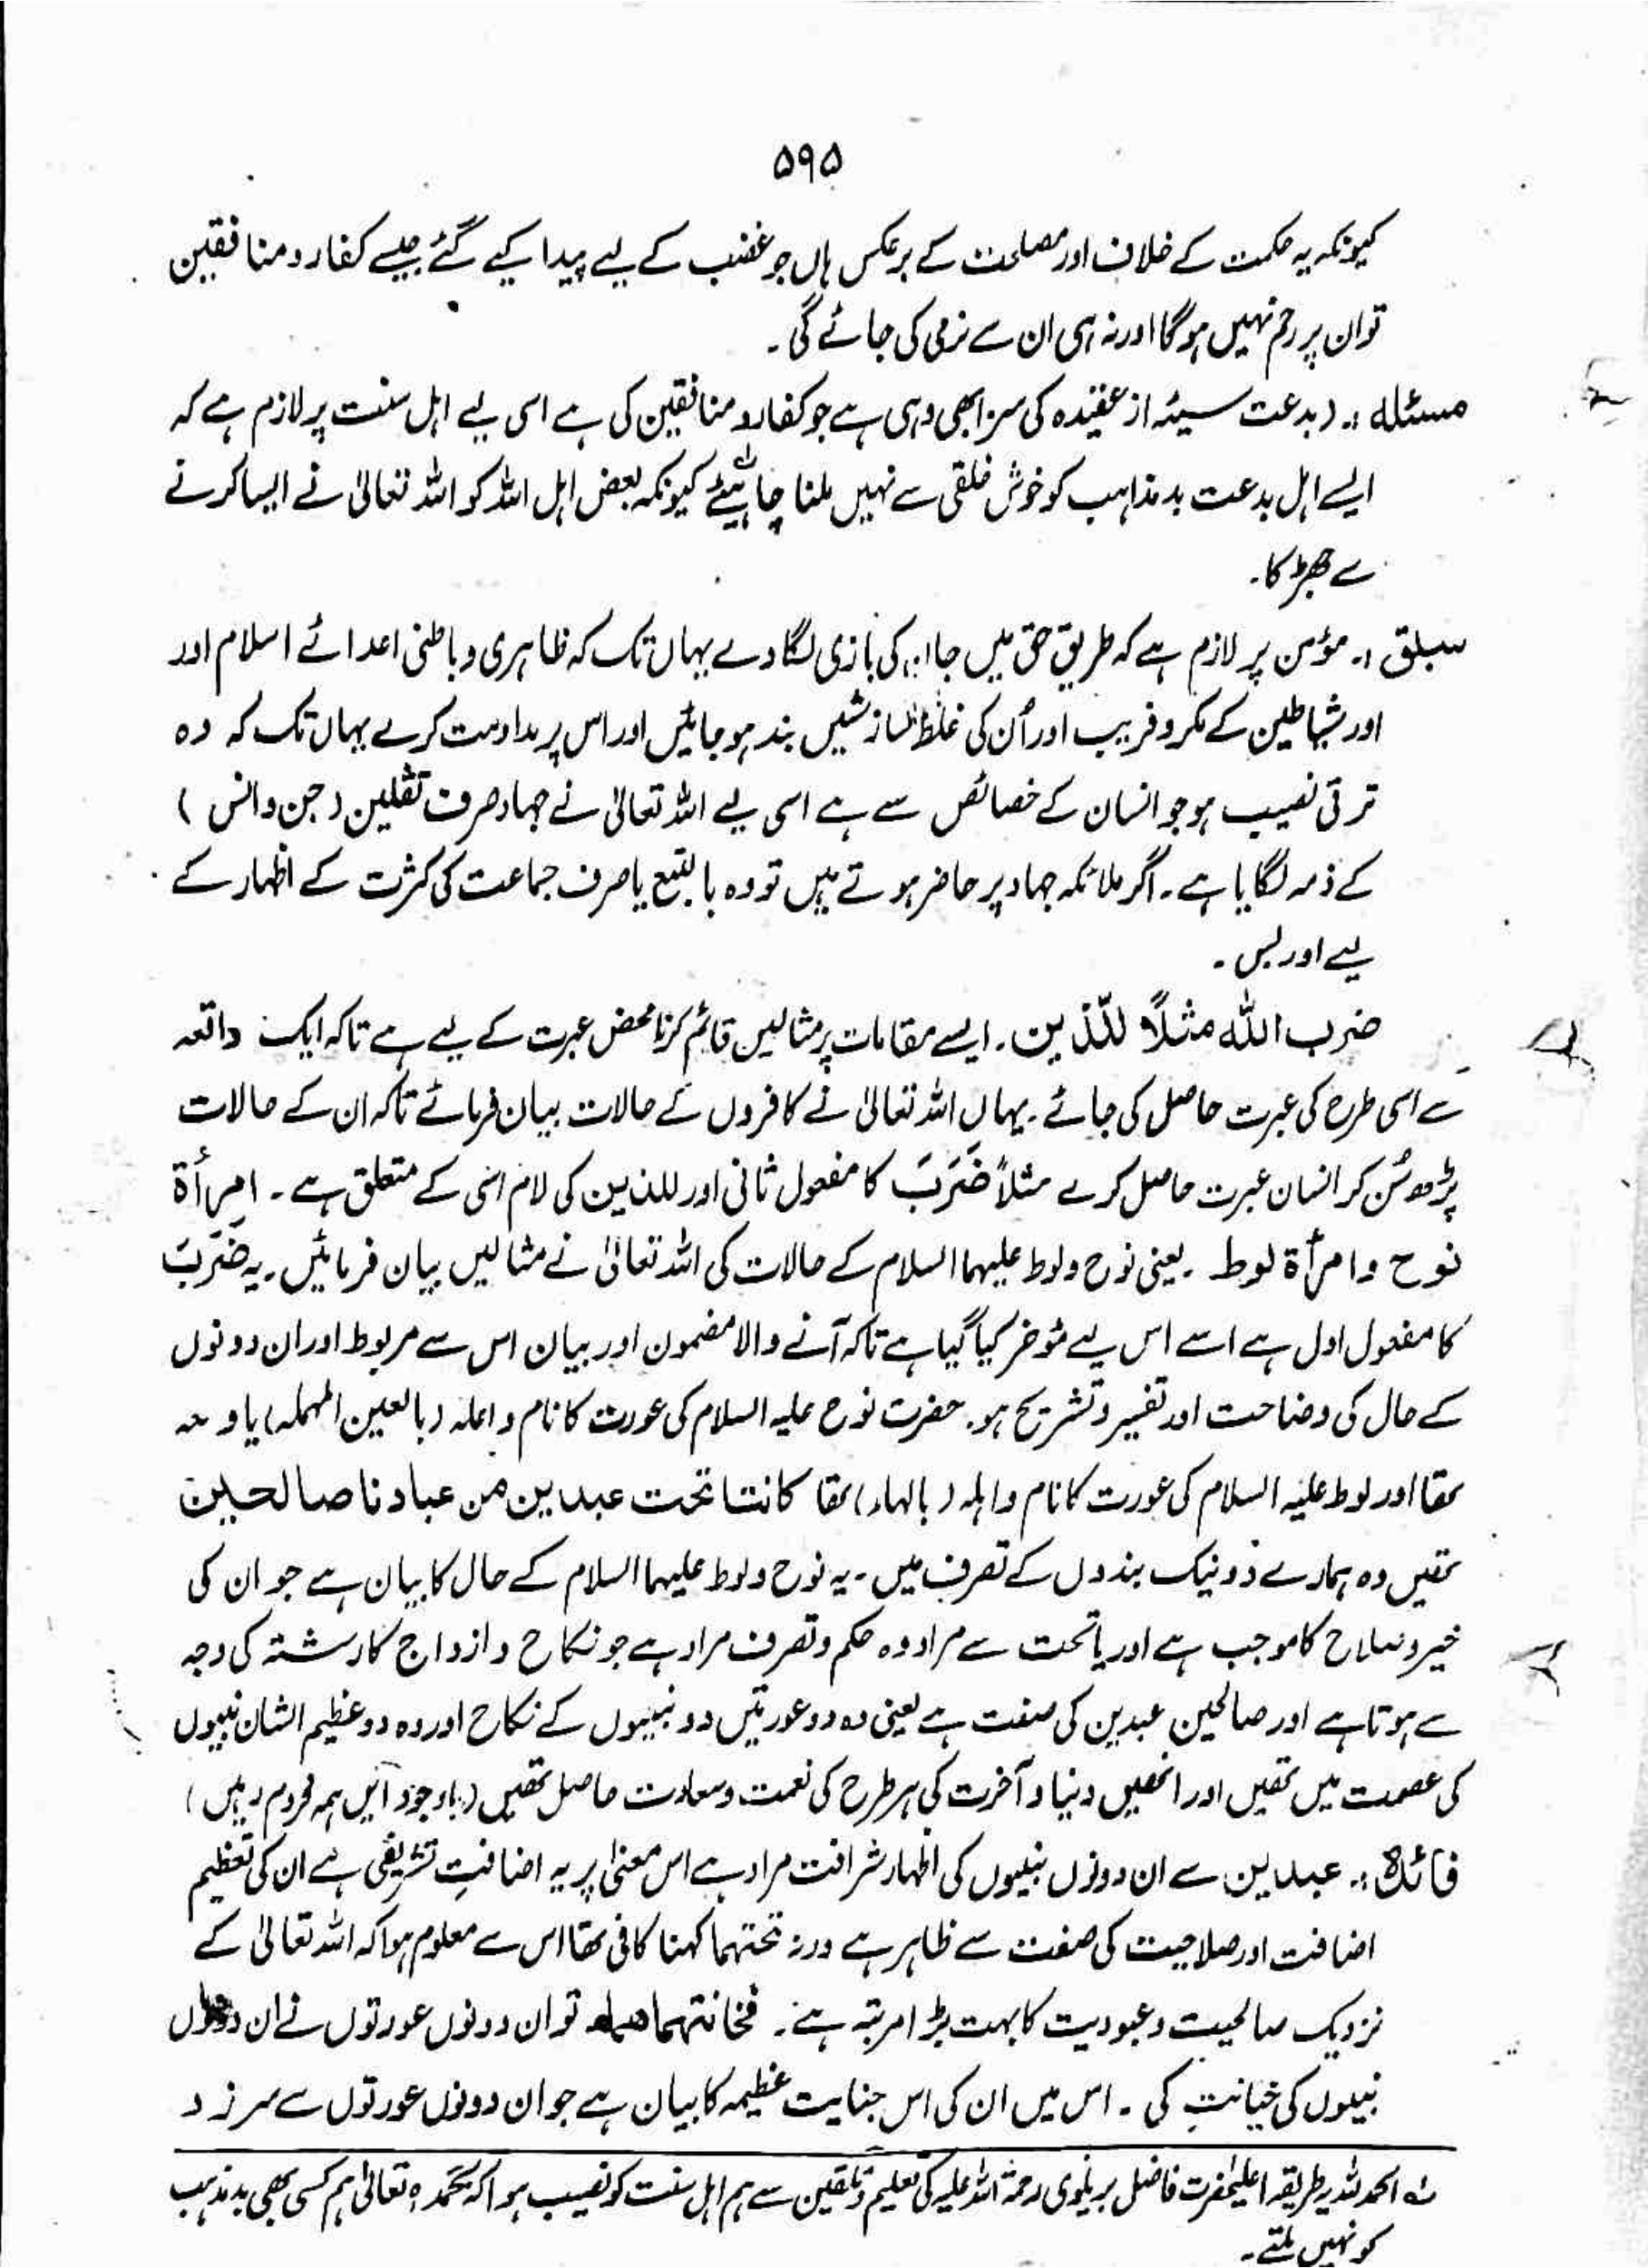 ۵۹۵
کیونکہ یہ حکمت کے خلاف اور مصلحت کے برعکس ہاں جو غضب کے لیے پیدا کیے گئے جیسے کفار و منافقین
تو ان پر رحم نہیں ہوگا اور نہ ہی ان سے نرمی کی جائے گی۔
مسئلہ :۔ (بدعت سیئہ از عقیدہ کی سزا بھی وہی ہے جو کفار و منافقین کی ہے اسی لیے اہل سنت پر لازم ہے کہ
ایسے اہل بدعت بد مذاہب کو خوش خلقی سے نہیں ملنا چاہئیے کیونکہ بعض اہل اللہ کو اللہ تعالیٰ نے ایسا کرنے
سے جھڑکا۔
سبق :۔ مؤمن پر لازم ہے کہ طریق حق میں جان کی بازی لگا دے یہاں تک کہ ظاہری و باطنی اعدائے اسلام اور
اور شیاطین کے مکر و فریب اور اُن کی غلط سازشیں بند ہو جائیں اور اس پر مداومت کرے یہاں تک کہ وہ
ترقی نصیب ہو جو انسان کے خصائص سے ہے اسی لیے اللہ تعالیٰ نے جہاد صرف ثقلین (جن و انس)
کے ذمہ لگایا ہے۔ اگر ملائکہ جہاد پر حاضر ہوتے ہیں تو وہ بالتبع یا صرف جماعت کی کثرت کے اظہار کے
لیے اور بس۔
ضرب اللہ مثلاً للّذین۔ ایسے مقامات پر مثالیں قائم کرنا محض عبرت کے لیے ہے تاکہ ایک واقعہ
سے اسی طرح کی عبرت حاصل کی جائے۔ یہاں اللہ تعالیٰ نے کافروں کے حالات بیان فرمائے تاکہ ان کے حالات
پڑھ سُن کر انسان عبرت حاصل کرے مثلاً ضَرَبَ کا مفعول ثانی اور للذین کی لام اسی کے متعلق ہے۔ امرأۃ
نوح وامرأۃ لوط۔ یعنی نوح و لوط علیہما السلام کے حالات کی اللہ تعالیٰ نے مثالیں بیان فرمائیں۔ یہ ضَرَبَ
کا مفعول اول ہے اسے اس لیے مؤخر کیا گیا ہے تاکہ آنے والا مضمون اور بیان اس سے مربوط اور ان دونوں
کے حال کی وضاحت اور تفسیر و تشریح ہو۔ حضرت نوح علیہ السلام کی عورت کا نام واعلہ (بالعین المہملہ) یا
تھا اور لوط علیہ السلام کی عورت کا نام واہلہ (بالہاء) تھا کانتا تحت عبدین من عبادنا صالحین
تھیں وہ ہمارے دو نیک بندوں کے تصرف میں۔ یہ نوح و لوط علیہما السلام کے حال کا بیان ہے جو ان کی
خیر و صلاح کا موجب ہے اور یا تحت سے مراد وہ حکم و تصرف مراد ہے جو نکاح و ازدواج کا رشتہ کی وجہ
سے ہوتا ہے اور صالحین عبدین کی صفت ہے یعنی وہ دو عورتیں دو نبیوں کے نکاح اور وہ دو عظیم الشان نبیوں
کی عصمت میں تھیں اور انھیں دنیا و آخرت کی ہر طرح کی نعمت و سعادت حاصل تھیں (باوجود ایں ہمہ محروم رہیں)
فائدہ :۔ عبدین سے ان دونوں نبیوں کی اظہار شرافت مراد ہے اس معنیٰ پر یہ اضافتِ تشریفی ہے ان کی تعظیم
اضافت اور صلاحیت کی صفت سے ظاہر ہے ورنہ تحتہما کہنا کافی تھا اس سے معلوم ہوا کہ اللہ تعالیٰ کے
نزدیک صالحیت و عبودیت کا بہت بڑا مرتبہ ہے۔ فخانتہما تو ان دونوں عورتوں نے ان دونوں
نبیوں کی خیانت کی۔ اس میں ان کی اس جنایت عظیمہ کا بیان ہے جو ان دونوں عورتوں سے سرزد
الحمد للہ یہ طریقہ اعلیٰحضرت فاضل بریلوی رحمۃ اللہ علیہ کی تعلیم و تلقین سے ہم اہل سنت کو نصیب ہوا کہ بحمدہ تعالیٰ ہم کسی بھی بدمذہب
کو نہیں ملتے۔